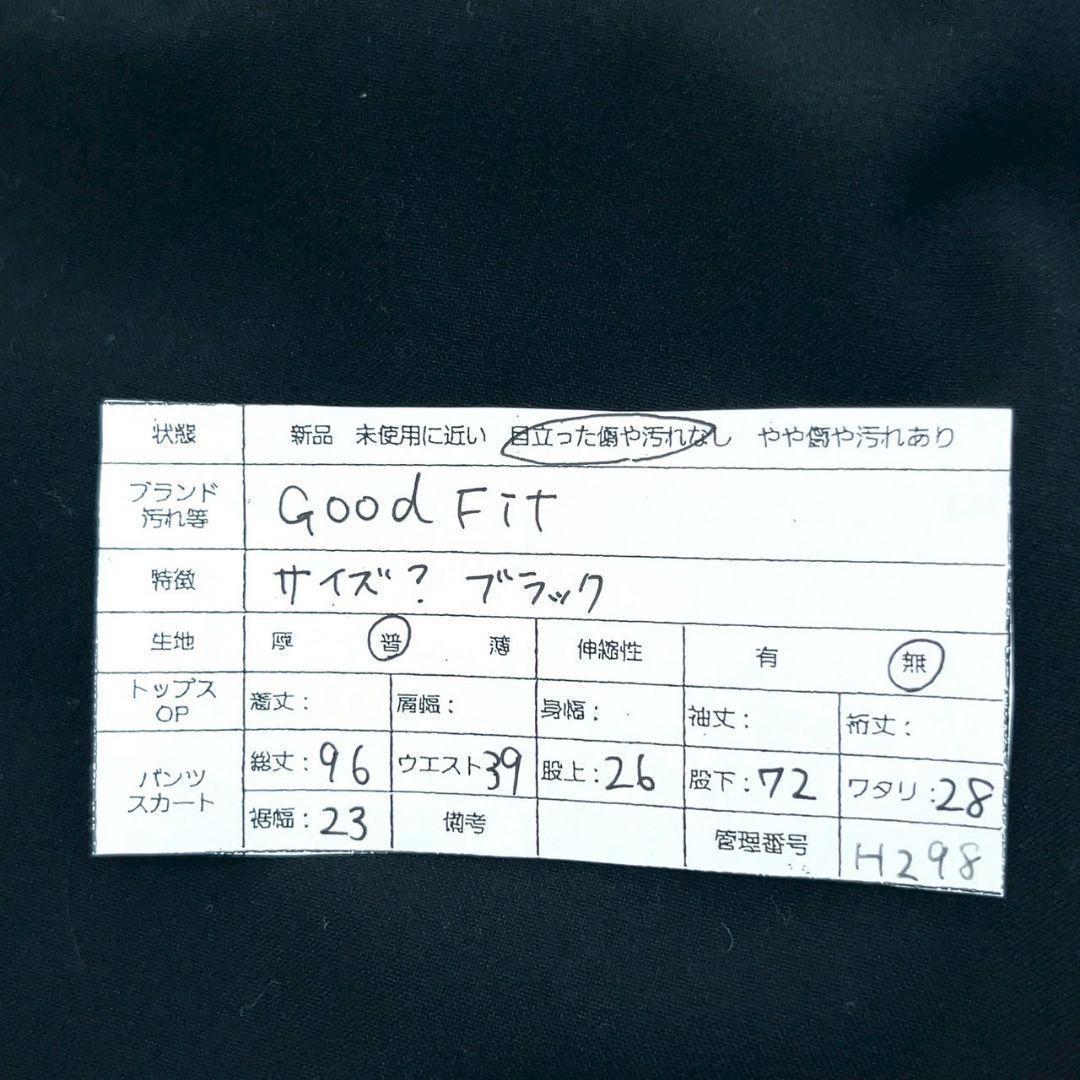 状態 新品 未使用に近い 目立った傷や汚れなし やや傷や汚れあり
ブランド 汚れ等 Good Fit
特徴 サイズ? ブラック
生地 厚 普 薄 伸縮性 有 無
トップス OP 着丈: 肩幅: 身幅: 袖丈: 裄丈:
パンツ スカート 総丈:96 ウエスト39 股上:26 股下:72 ワタリ:28
裾幅:23 備考 管理番号 H298